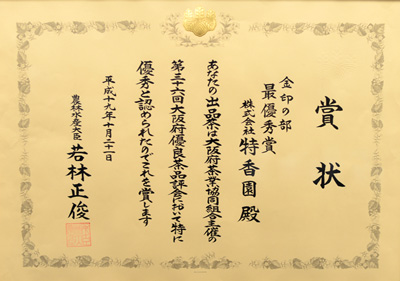 賞状
金印の部
最優秀賞
株式会社特香園殿
あなたの出品茶は大阪府茶業協同組合主催の
第三十六回大阪府優良茶品評会において特に
優秀と認められたのでこれを賞します
平成十九年十月二十一日
農林水産大臣 若林正俊